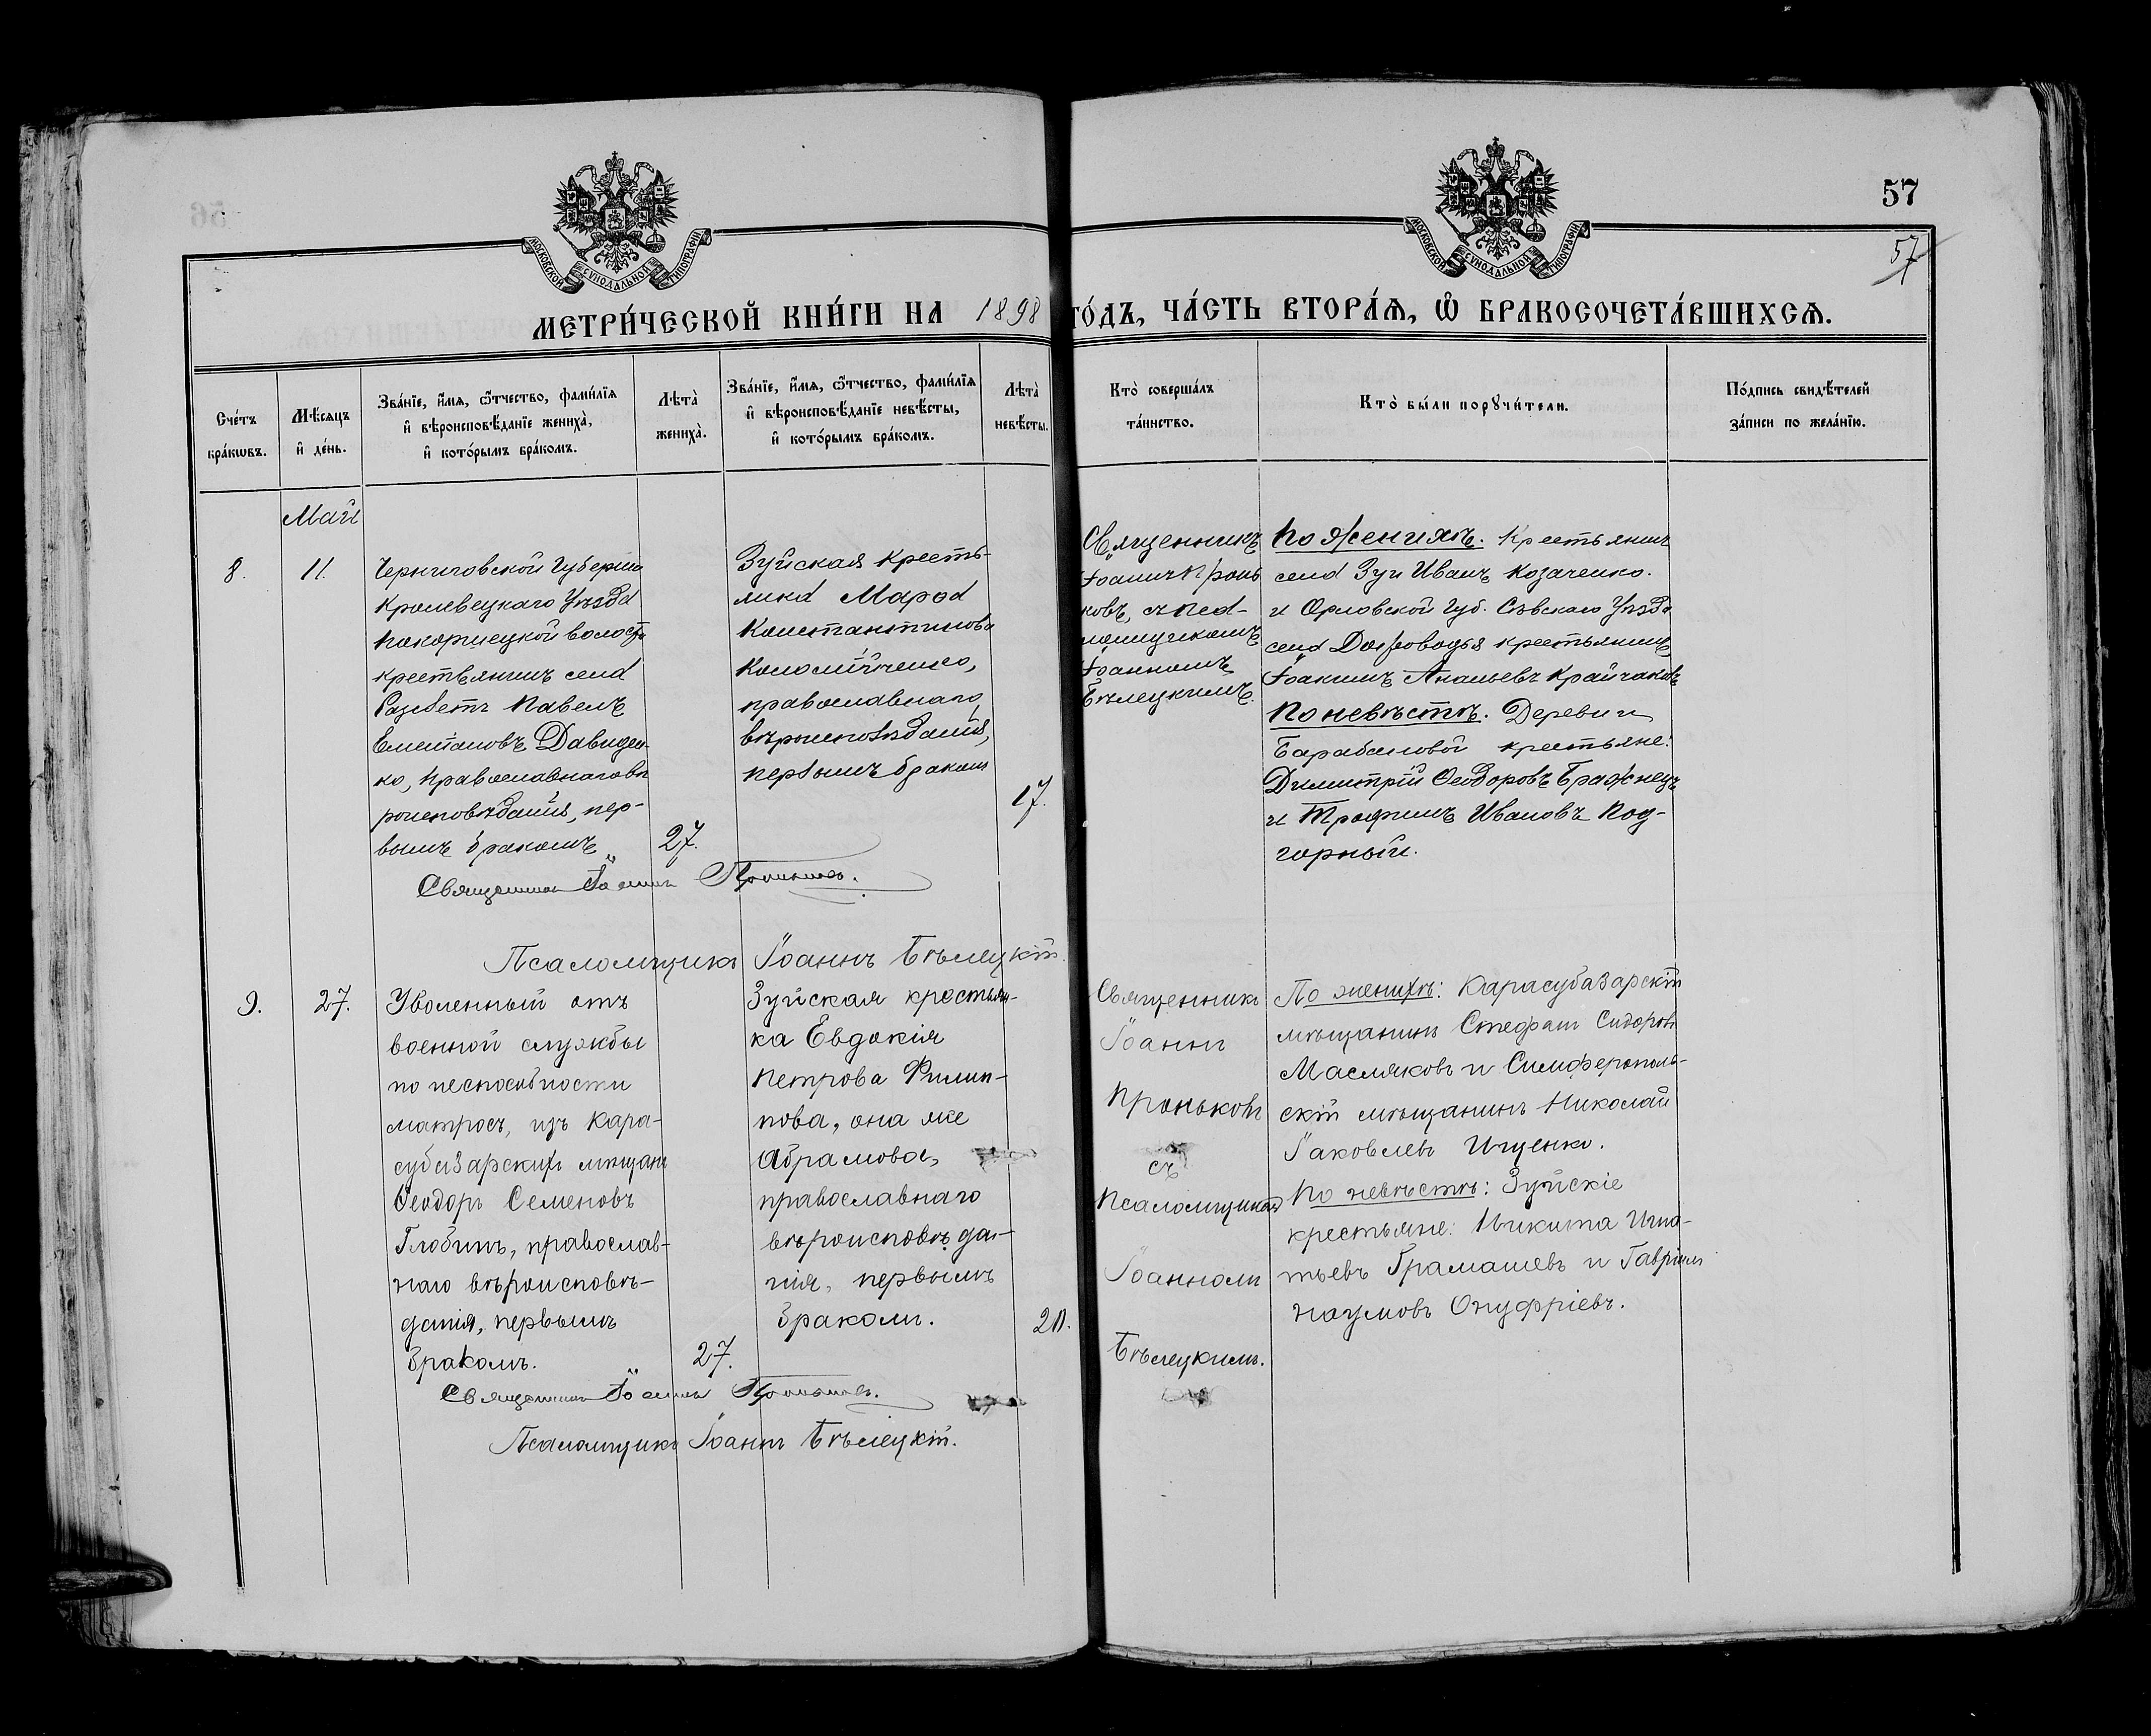 57
57
МОСКОВСКОЙ СѴНОДАЛЬНОЙ ТИПОГРАФІИ
МОСКОВСКОЙ СѴНОДАЛЬНОЙ ТИПОГРАФІИ
МЕТРИ́ЧЕСКОЙ КНИ́ГИ НА 1898 ГО́ДЪ, ЧА́СТЬ ВТОРА́Я, Ѽ БРАКОСОЧЕТА́ВШИХСЯ.
Сче́тъ
бра́кѡвъ.
Мѣ́сяцъ
и҆ де́нь.
Зва́нїе, и҆́мѧ, ѻ҆́тчество, фами́лїѧ
и҆ вѣроисповѣ́данїе жениха̀,
и҆ кото́рымъ бра́комъ.
Лѣта̀
жениха̀.
Зва́нїе, и҆́мѧ, ѻ҆́тчество, фами́лїѧ
и҆ вѣроисповѣ́данїе невѣ́сты,
и҆ кото́рымъ бра́комъ.
Лѣта̀
невѣ́сты.
Кто̀ соверша́лъ
та́инство.
Кто̀ бы́ли порꙋчи́тели.
По́дпись свидѣ́телей
за́писи по жела́нїю.
Май
8.
11.
Черниговской Губерніи
Кролевецкаго Уѣзда
Покорщецкой волости
крестьянинъ села
Павелъ
Давиден-
ко, православнаго вѣ-
роисповѣданія, пер-
вымъ бракомъ
27.
Зуйская кресть-
янка
Константинова
Коломійченко,
православнаго
вѣроисповѣданія,
первымъ бракомъ
17.
Священникъ
Іоаннъ Пронь
ковъ, съ псал-
мощикомъ
Іоанномъ
Бѣлецкимъ.
По женихѣ. Крестьянинъ
села Зуи Иванъ Козаченко.
и Орловской Губ. Сѣвскаго Уѣзда
села Доброводья крестьянинъ
Іоакимъ Ананьевъ
По невѣстѣ. Деревни
Барабановой крестьяне:
Димитрій Ѳеодоровъ Бражнецъ
и Трофимъ Ивановъ Под-
горный.
Священникъ Іоаннъ Проньковъ.
Псаломщикъ Іоаннъ Бѣлецкій.
9.
27.
Уволенный отъ
военной службы
по неспособности
матросъ, изъ Кара-
субазарскихъ мѣщанъ
Ѳеодоръ Семеновъ
Глобинъ, православ-
наго вѣроисповѣ-
данія, первымъ
бракомъ.
27.
Зуйская крестьян-
ка Евдокія
Петрова Филип-
пова, она же
Абрамова,
православнаго
вѣроисповѣда-
нія, первымъ
бракомъ.
20.
Священникъ
Іоаннъ
Проньковъ
съ
Псаломщикомъ
Іоанномъ
Бѣлецкимъ.
По женихѣ: Карасубазарскій
мѣщанинъ Стефанъ Сидоровъ
Масляковъ и Симферополь-
скій мѣщанинъ Николай
Іаковлевъ Ищенко.
По невѣстѣ: Зуйскіе
крестьяне: Никита Игна-
тьевъ Грамашевъ и Гавріилъ
Наумовъ Онуфріевъ.
Священникъ Іоаннъ Проньковъ.
Псаломщикъ Іоаннъ Бѣлецкій.